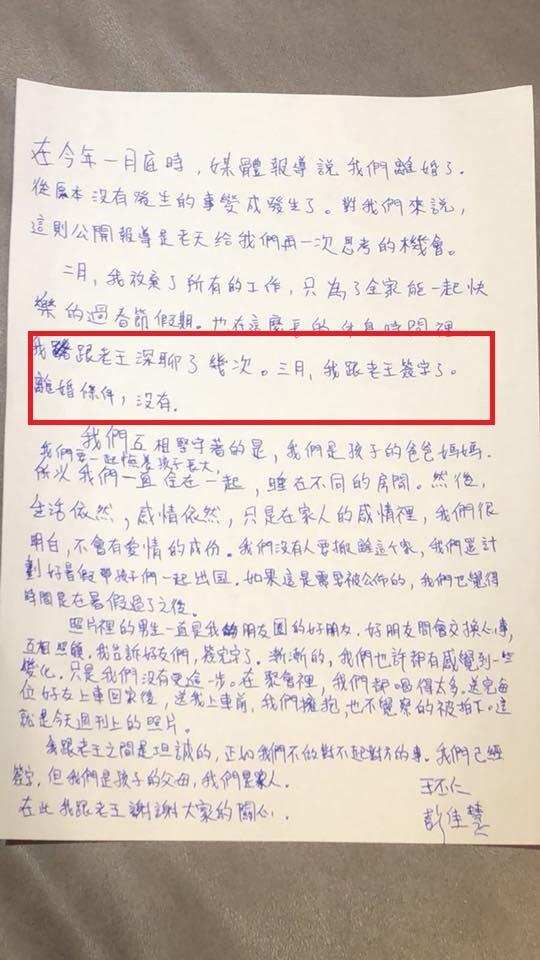 在今年一月底時，媒體報導說我們離婚了。
從原本沒有發生的事變成發生了。對我們來說，
這則公開報導是老天給我們再一次思考的機會。
二月，我放棄了所有的工作，只為了全家能一起快
樂的過春節假期。也在這麼長的休息時間裡
我跟老王深聊了幾次。三月，我跟老王簽字了。
離婚條件，沒有.
我們互相堅守著的是，我們是孩子的爸爸媽媽.
我們要一起陪著孩子長大,
所以我們一直住在一起，睡在不同的房間。然後，
生活依然，感情依然，只是在家人的感情裡，我們很
明白，不會有愛情的成份。我們沒有人要撤離這個家，我們還計
劃好暑假帶孩子們一起出國。如果這是需要被公佈的，我們也覺得
時間是在暑假過了之後。
照片裡的男生一直是我朋友圈的好朋友．好朋友間會交換心事,
互相照顧．我告訴好友們，簽完字了．漸漸的，我們也許都有感覺到一些
變化．只是我們沒有更進一步。在聚會裡，我們都喝得太多．送完每
位好友上車回家後，送我上車前，我們擁抱，也不覺察的被拍下。這
就是今天週刊上的照片。
我跟老王之間是坦誠的，正如我們不做對不起對方的事．我們已經
簽字，但我們是孩子的父母，我們是家人．
在此我跟老王謝謝大家的關心．
王丕仁
彭佳慧